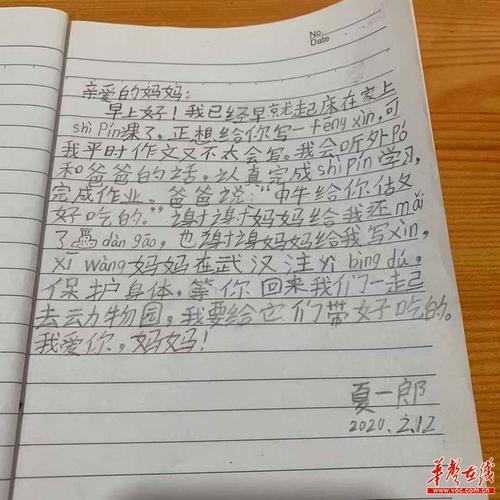 No.
Date
亲爱的妈妈：
早上好！我已经早就起床在家上
shì pín课了。正想给你写一fēng xìn，可
我平时作文又不太会写。我会听外pó
和爸爸的话，认真完成shì pín学习，
完成作业。爸爸说：“中午给你做
好吃的。”谢谢妈妈给我还mǎi
了dàn gāo，也谢谢妈妈给我写xìn，
xī wàng妈妈在武汉注yì bìng dú。
保护身体，等你回来我们一起
去动物园，我要给它们带好吃的。
我爱你，妈妈！
夏一郎
2020.2.12
华声在线
www.voc.com.cn